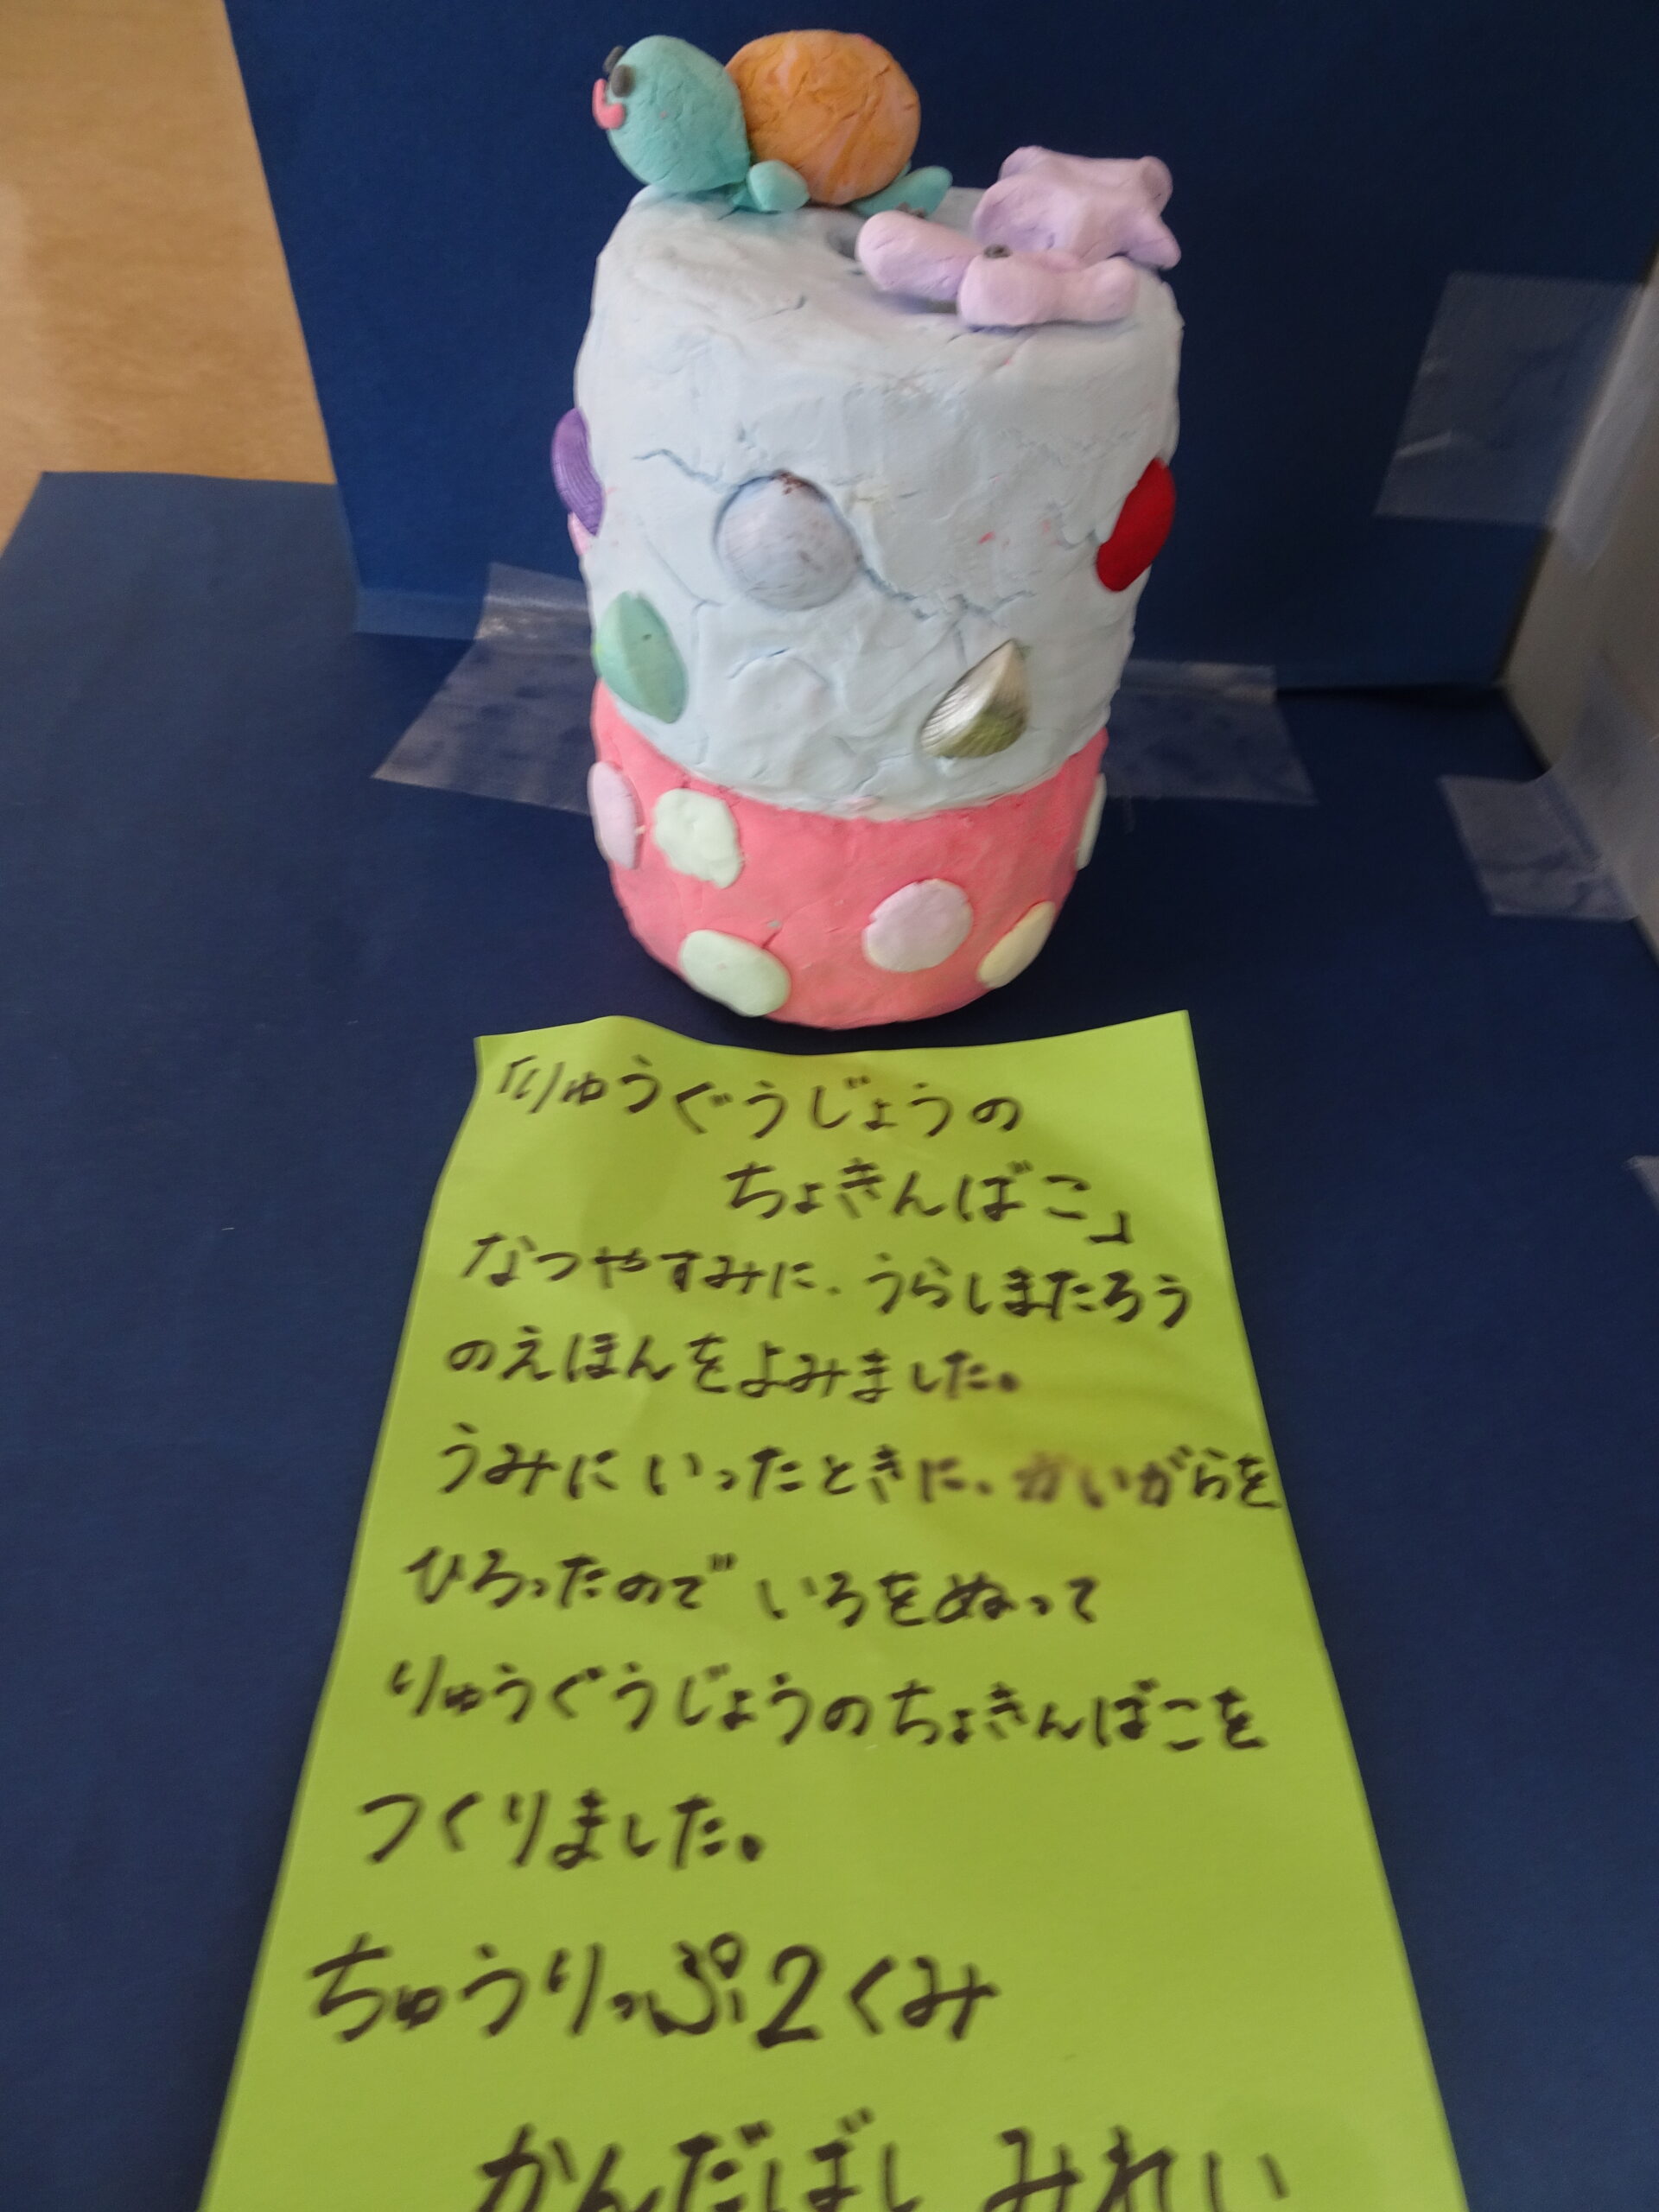 「りゅうぐうじょうの
ちょきんばこ」
なつやすみに、うらしまたろう
のえほんをよみました。
うみにいったときに、かいがらを
ひろったのでいろをぬって
りゅうぐうじょうのちょきんばこを
つくりました。
ちゅうりっぷ2くみ
かんだばし みれい